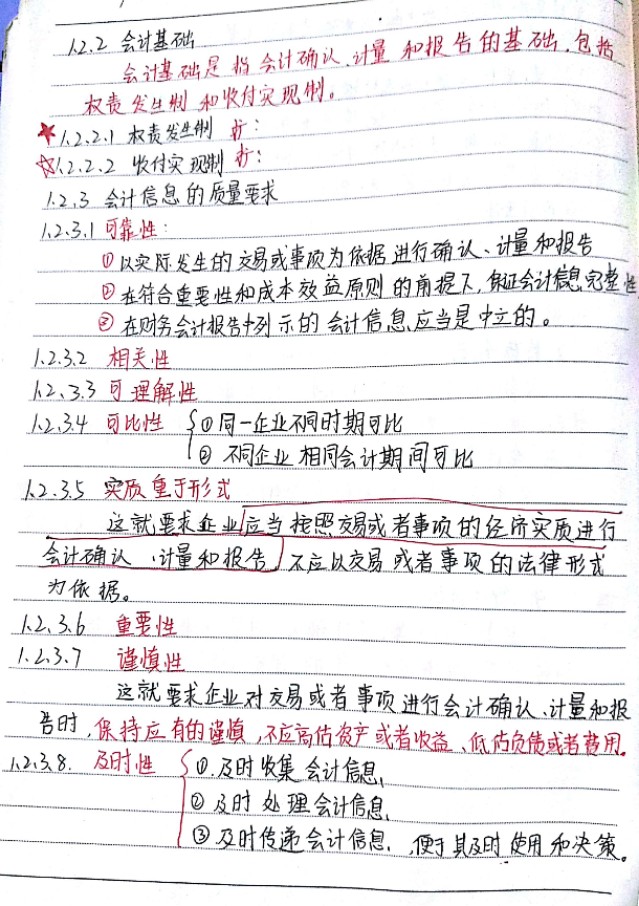 1.2.2 会计基础
会计基础是指会计确认、计量和报告的基础,包括
权责发生制和收付实现制。
★1.2.2.1 权责发生制 扩:
☆1.2.2.2 收付实现制 扩:
1.2.3 会计信息的质量要求
1.2.3.1 可靠性:
①以实际发生的交易或事项为依据进行确认、计量和报告
②在符合重要性和成本效益原则的前提下,保证会计信息完整性
③在财务会计报告中列示的会计信息应当是中立的。
1.2.3.2 相关性
1.2.3.3 可理解性
1.2.3.4 可比性 ①同一企业不同时期可比
②不同企业相同会计期间可比
1.2.3.5 实质重于形式
这就要求企业应当按照交易或者事项的经济实质进行
会计确认、计量和报告,不应以交易或者事项的法律形式
为依据。
1.2.3.6 重要性
1.2.3.7 谨慎性
这就要求企业对交易或者事项进行会计确认、计量和报
告时,保持应有的谨慎,不应高估资产或者收益、低估负债或者费用。
1.2.3.8. 及时性 ①.及时收集会计信息、
②及时处理会计信息、
③及时传递会计信息.,便于其及时使用和决策。